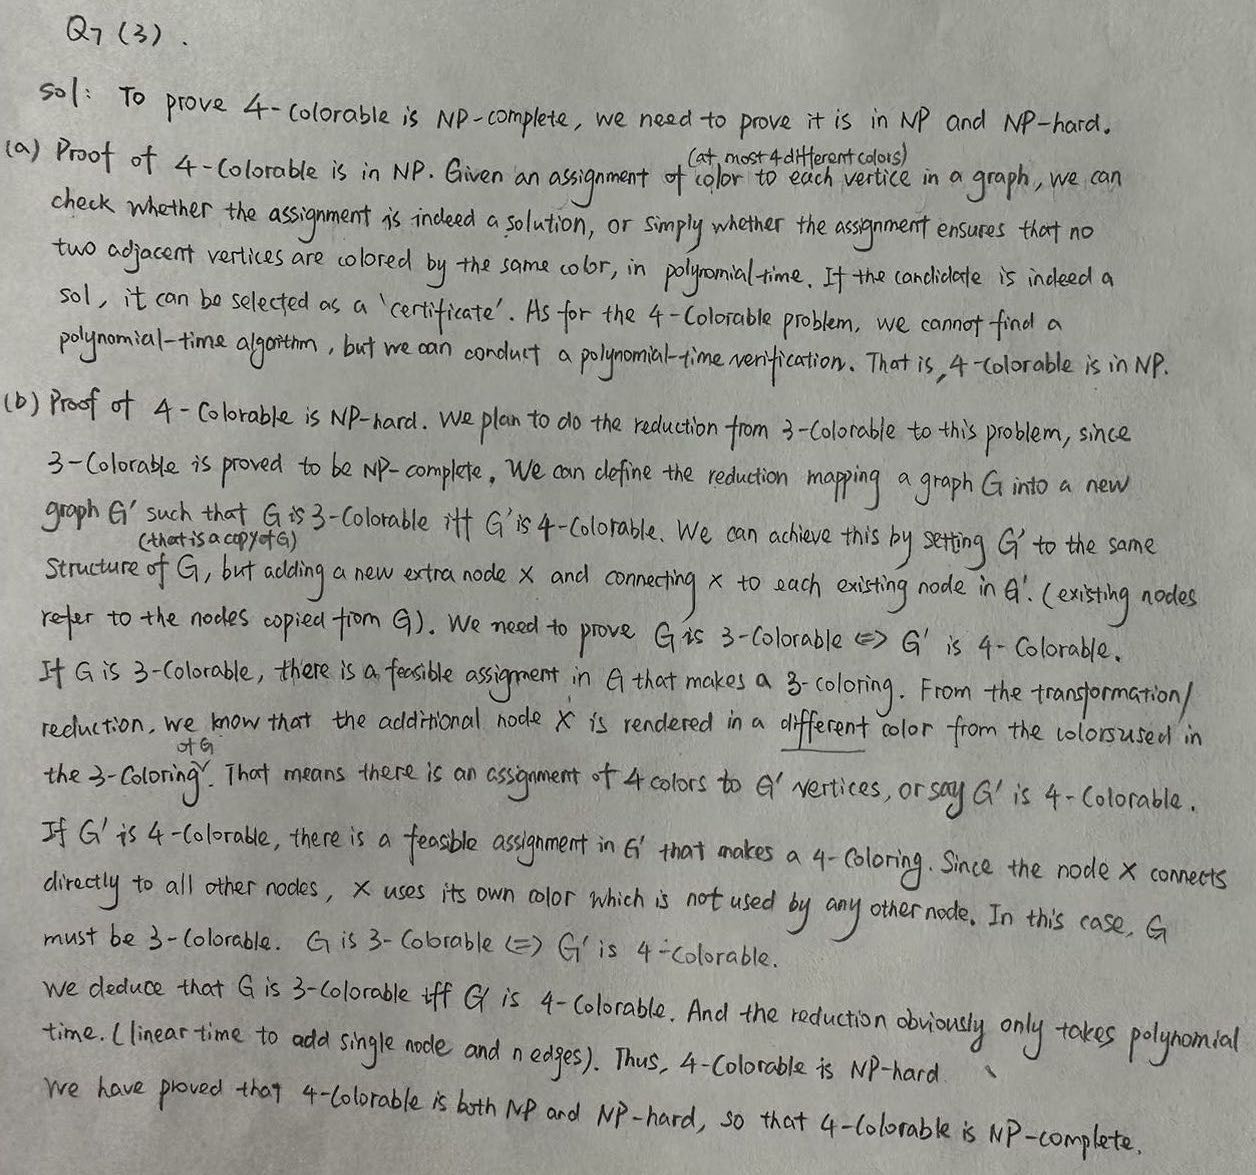 Q7 (3).
Sol: To prove 4-Colorable is NP-complete, we need to prove it is in NP and NP-hard.
(a) Proof of 4-Colorable is in NP. Given an assignment of color to each vertice in a graph, we can
(at most 4 different colors)
check whether the assignment is indeed a solution, or simply whether the assignment ensures that no
two adjacent vertices are colored by the same color, in polynomial time. If the candidate is indeed a
sol, it can be selected as a 'certificate'. As for the 4-Colorable problem, we cannot find a
polynomial-time algorithm, but we can conduct a polynomial-time verification. That is, 4-Colorable is in NP.
(b) Proof of 4-Colorable is NP-hard. We plan to do the reduction from 3-Colorable to this problem, since
3-Colorable is proved to be NP-complete. We can define the reduction mapping a graph G into a new
graph G' such that G is 3-Colorable iff G' is 4-Colorable. We can achieve this by setting G' to the same
(that is a copy of G)
structure of G, but adding a new extra node x and connecting x to each existing node in G'. (existing nodes
refer to the nodes copied from G). We need to prove G is 3-Colorable <=> G' is 4-Colorable.
If G is 3-Colorable, there is a feasible assigment in G that makes a 3-coloring. From the transformation/
reduction, we know that the additional node X is rendered in a different color from the colors used in
of G
the 3-Coloring. That means there is an assignment of 4 colors to G' vertices, or say G' is 4-Colorable.
If G' is 4-Colorable, there is a feasible assignment in G' that makes a 4-Coloring. Since the node X connects
directly to all other nodes, X uses its own color which is not used by any other node. In this case, G
must be 3-Colorable. G is 3-Colorable <=> G' is 4-Colorable.
We deduce that G is 3-Colorable iff G' is 4-Colorable. And the reduction obviously only takes polynomial
time. (linear time to add single node and n edges). Thus, 4-Colorable is NP-hard
We have proved that 4-Colorable is both NP and NP-hard, so that 4-Colorable is NP-complete.